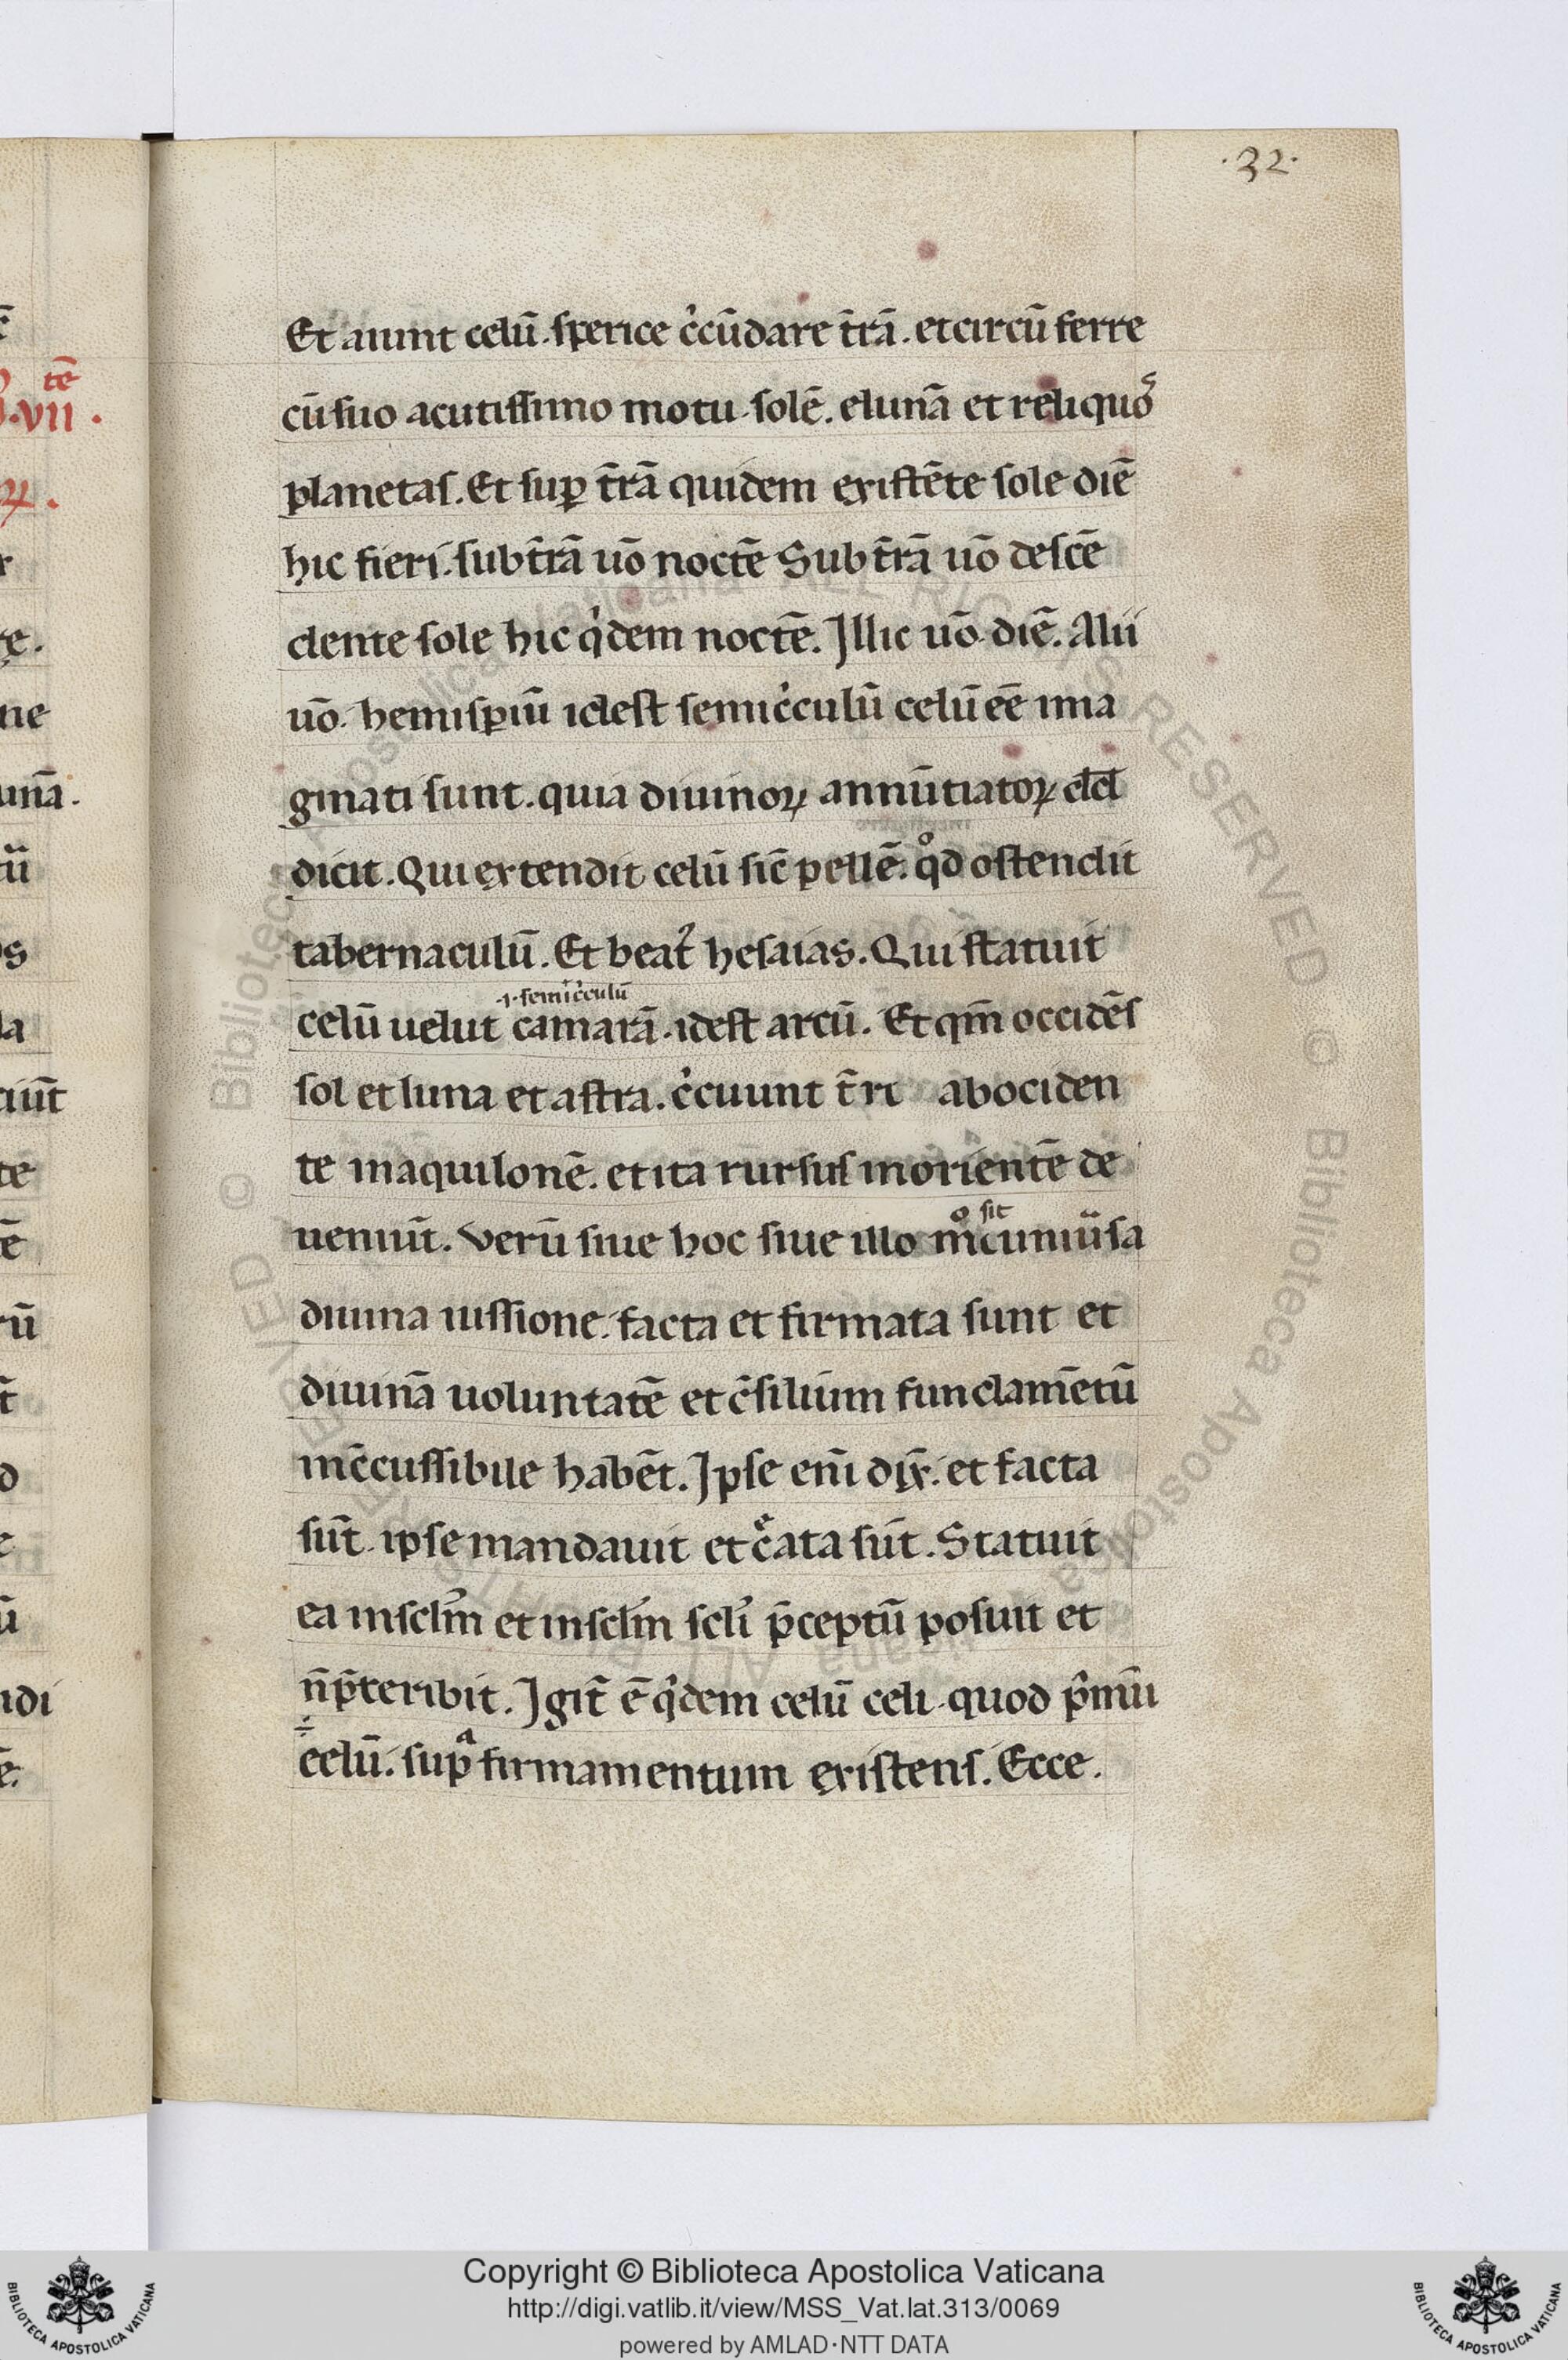 .32.
Et aiunt celū. sperice c̓cūdare t̄rā. et circū ferre
cū suo acutissimo motu. solē. elunā et reliquos
planetas. Et suꝑ t̄rā quidem existēte sole diē
hic fieri. sub t̄rā uō noctē Sub t̄rā uō descē
dente sole hic q̓dem noctē. Jllic uō diē. Alii
uō. hemispiū idest semic̓culū celū eē ima
ginati sunt. quia diuinoꝝ annūtiatoꝝ d̄d̄
dicit. Qui extendit celū sic̄ pellē. qͦd ostendit
tabernaculū. Et beat᷑ hesaias. Qui statuit
.i. semic̓culū
celū uelut camarā. idest arcū. Et qm̄ occidēs
sol et luna et astra. c̓cuunt t̄rī ab ociden
te in aquilonē. et ita rursus in orientē de
ueniūt. Verū siue hoc siue illo mͦ sit cuniūsa
diuina iussione. facta et firmata sunt et
diuinā uoluntatē et c̄silium fundam̄etū
inc̄cussibile habēt. Jpse eni̅ dix̄. et facta
sūt. ipse mandauit et cͤata sūt. Statuit
ea in scl̄m et in scl̄m scl̄i p̄ceptū posuit et
n̄ p̄teribit. Jgit̄ ē q̓dem celū celi. quod p̓mū
celū. supͣ firmamentum existens. Ecce.
tē
.VII.
Copyright © Biblioteca Apostolica Vaticana
http://digi.vatlib.it/view/MSS_Vat.lat.313/0069
powered by AMLAD·NTT DATA
BIBLIOTECA APOSTOLICA VATICANA
BIBLIOTECA APOSTOLICA VATICANA